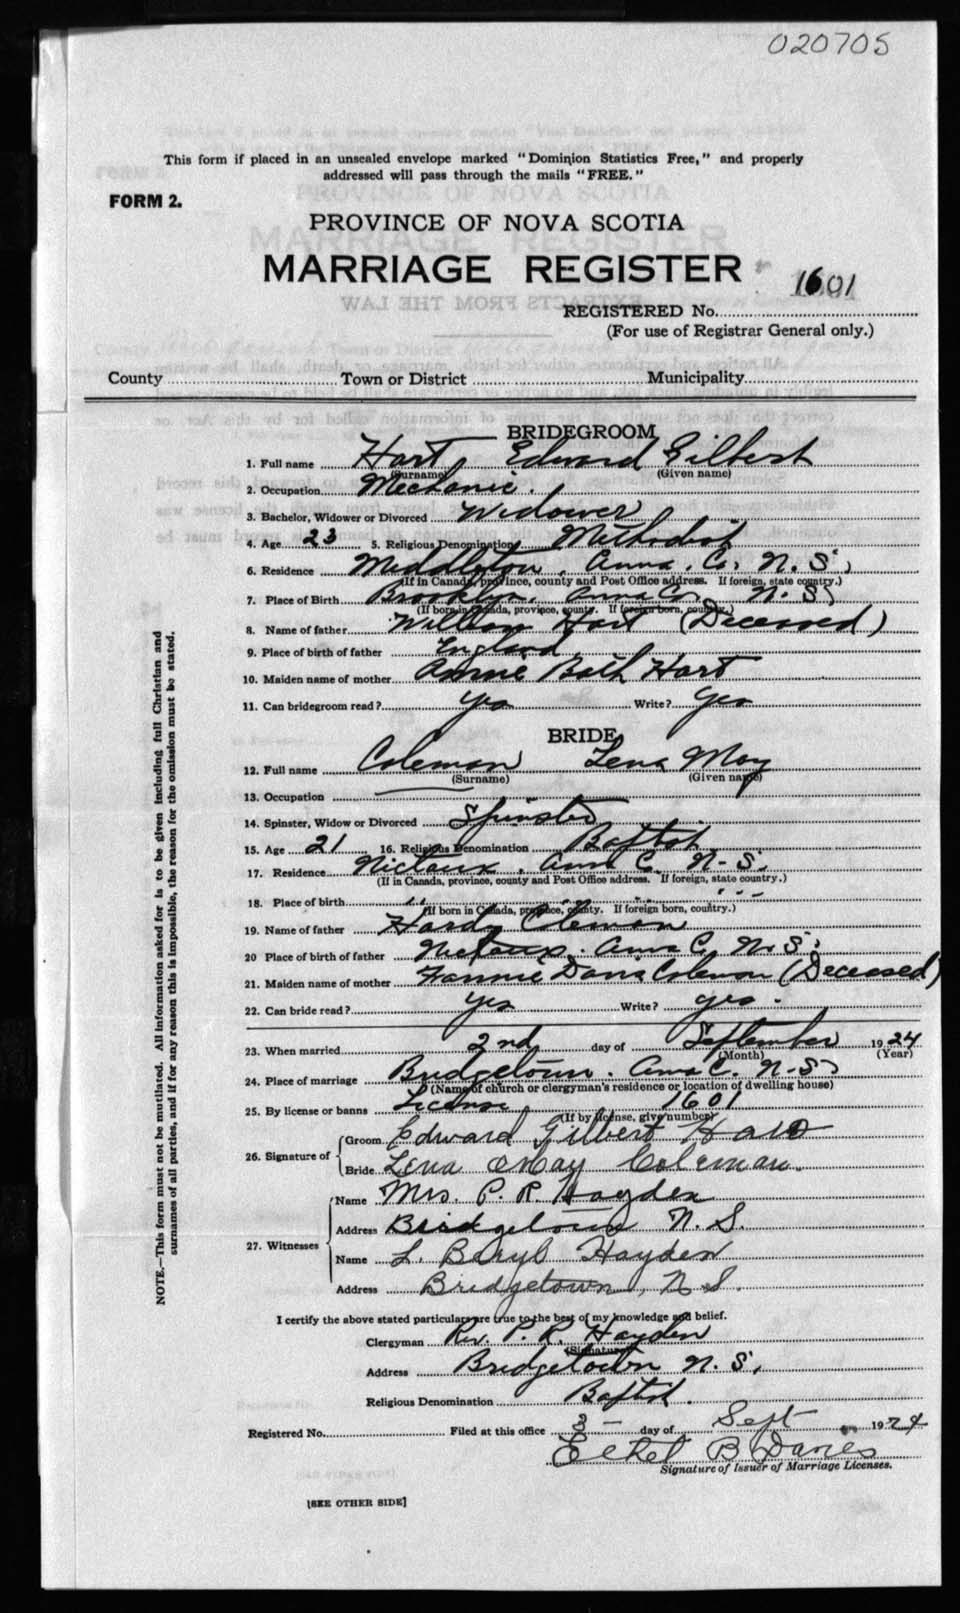 020705
This form if placed in an unsealed envelope marked "Dominion Statistics Free," and properly
addressed will pass through the mails "FREE."
FORM 2.
PROVINCE OF NOVA SCOTIA
MARRIAGE REGISTER
1601
REGISTERED No.
(For use of Registrar General only.)
County Town or District Municipality
BRIDEGROOM
1. Full name Hart Edward Gilbert
(Surname) (Given name)
2. Occupation Mechanic.
3. Bachelor, Widower or Divorced Widower
4. Age 23 5. Religious Denomination Methodist
6. Residence Middleton, Anna. Co. N. S.
(If in Canada, province, county and Post Office address. If foreign, state country.)
7. Place of Birth Brooklyn, Anna Co. N. S.
(If born in Canada, province, county. If foreign born, country.)
8. Name of father William Hart (Deceased)
9. Place of birth of father England.
10. Maiden name of mother Annie Bath Hart
11. Can bridegroom read? Yes Write? Yes
BRIDE
12. Full name Coleman Lena May
(Surname) (Given name)
13. Occupation
14. Spinster, Widow or Divorced Spinster
15. Age 21 16. Religious Denomination Baptist
17. Residence Nictaux, Anna C. N. S.
(If in Canada, province, county and Post Office address. If foreign, state country.)
18. Place of birth " "
(If born in Canada, province, county. If foreign born, country.)
19. Name of father Hardy Coleman
20 Place of birth of father Nictaux. Anna C. N. S.
21. Maiden name of mother Fannie Davis Coleman (Deceased)
22. Can bride read? Yes Write? yes.
23. When married 2nd day of September 1924
(Month) (Year)
24. Place of marriage Bridgetown. Anna C. N. S.
(Name of church or clergyman's residence or location of dwelling house)
25. By license or banns License 1601
(If by license, give number)
26. Signature of
Groom Edward Gilbert Hart
Bride Lena May Coleman.
27. Witnesses
Name Mrs. P. R. Hayden
Address Bridgetown N. S.
Name L. Beryl Hayden
Address Bridgetown, N. S.
I certify the above stated particulars are true to the best of my knowledge and belief.
Clergyman Rev. P. R. Hayden
(Signature)
Address Bridgetown N. S.
Religious Denomination Baptist.
Registered No. Filed at this office 3 - day of Sept 1924
Ethel B Davies
Signature of Issuer of Marriage Licenses.
[SEE OTHER SIDE]
NOTE.—This form must not be mutilated. All information asked for is to be given including full Christian and
surnames of all parties, and if for any reason this is impossible, the reason for the omission must be stated.